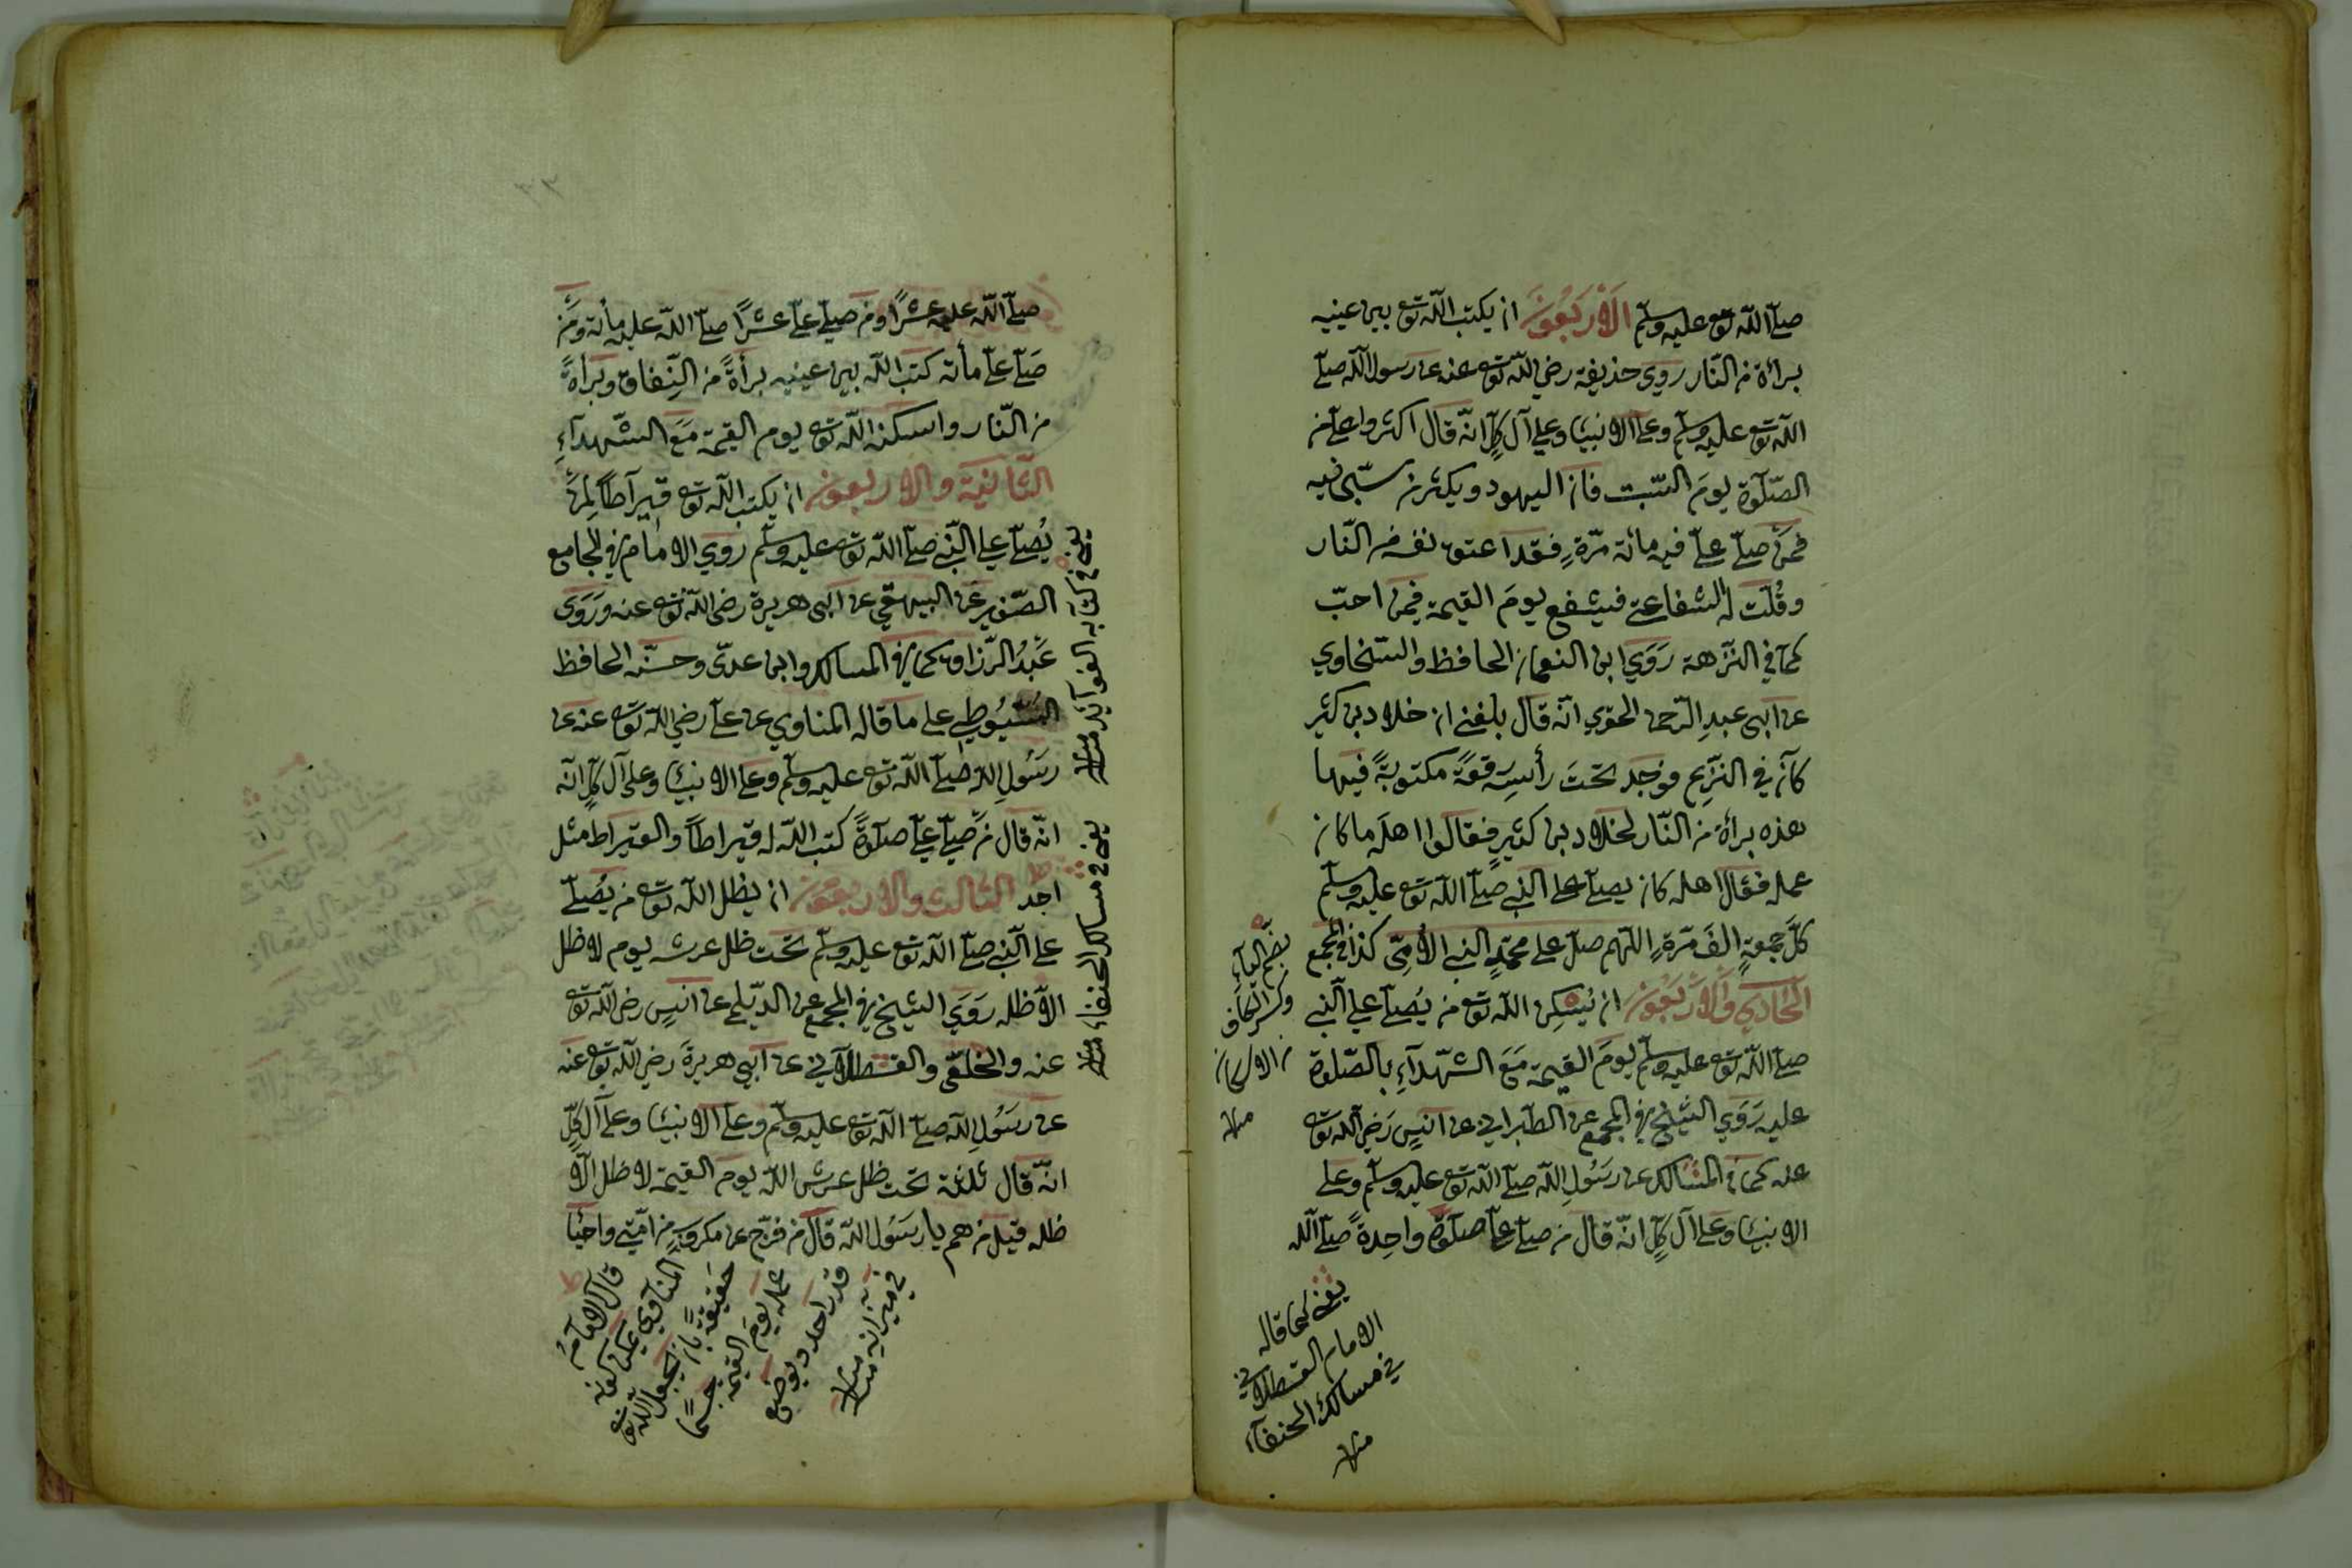 صلّى اللّه تع عليه وسلّم الاربعون ان يكتب اللّه تع بين عينيه
برائة من النّار روى حذيفة رضي اللّه تع عنه عن رسول اللّه صلّى
اللّه تع عليه وسلّم وعلى الانبيا وعلى آل كلٍّ انّه قال اكثروا علىّ من
الصّلوة يوم السّبت فان اليهود ويكثرن سبّى فيه
فمن صلّى علىّ فيه مائة مرّةٍ فقد اعتق نفسه من النّار
وقُلّت له الشفاعة فيشفع يوم القيمة فيمن احبّ
كما في النّزهة رَوَى ابن النعمان الحافظ والسّخاوي
عن ابى عبد الرّحمن المقرى انّه قال بلغنى ان خلاد بن كثير
كان في النّزع فوجد تحت رأسه رقعةً مكتوبةً فيها
هذه برائة من النّار لخلاد بن كثيرٍ فقالوا اهله ما كان
عمله فقال اهله كان يصلى على النبى صلّى اللّه تع عليه وسلّم
كلّ جمعةٍ الف مرّةٍ اللّهم صل على محمّدٍ النبى الأمّى كذا فى المجمع
الحادي والاربعون ان يُسكن اللّه تع من يُصلّى على النّبى
صلّى اللّه تع عليه وسلّم يوم القيمة مع الشهدآءِ بالصّلوة
عليه رَوَى الشيخ في المجمع عن الطبرانى عن انسٍ رضي اللّه تع
عنه كما في المسالك عن رسُول اللّه صلّى اللّه تع عليه وسلّم وعلى
الانبيا وعلى آل كلٍّ انّه قال من صلّى علىّ صلوةً واحدةً صلّى اللّه
بضم اليآءِ
وكسر الكاف
من الاسكان
منه
يعنى كما قاله
الامام القسطلانى
في مسالك الحنفآء
منه
صلّى اللّه عليه عشرًا ومن صلّى علىّ عشرًا صلّى اللّه عليه مائة ومن
صلّى علىّ مائة كتب اللّه بين عينيه برأةً من النّفاق وبرأةً
من النّار واسكنه اللّه تع يوم القيمة مع الشّهدآءِ
الثّانية والاربعون ان يكتب اللّه تع قيراطًا لمن
يُصلّى على النّبى صلّى اللّه تع عليه وسلّم روى الامام في الجامع
الصّغير عن البيهقى عن ابى هريرة رضى اللّه تع عنه ورَوَى
عبدُ الرّزاق كما في المسالك وابن عدىّ وحسّنه الحافظ
السّيُوطى على ما قاله المناوي عن علىّ رضي اللّه تع عنه عن
رسُول اللّه صلّى اللّه تع عليه وسلّم وعلى الانبيا وعلى آل كلٍّ انّه
انّه قال من صلّى علىّ صلوةً كتب اللّه له قيراطًا والقيراط مثل
احد الثّالث والاربعون ان يظل اللّه تع من يُصلّى
على النّبى صلّى اللّه تع عليه وسلّم تحت ظل عرشه يوم لا ظل
الاّ ظله رَوَى الشيخ في المجمع عن الدّيلمى عن انسٍ رضى اللّه تع
عنه والخلعى والقسطلانى عن ابى هريرة رضي اللّه تع عنه
عن رسُول اللّه صلّى اللّه تع عليه وسلّم وعلى الانبيا وعلى آل كلٍّ
انّه قال ثلثة تحت ظل عرش اللّه يوم القيمة لا ظل الاّ
ظله قيل من هم يا رسُول اللّه قال من فرّج عن مكروبٍ من امّتى واحيا
يعنى في كتابه الفوآئد منه
يعنى في مسالك الحنفاء منه
قال الامام
المناوى يمكن كونه
حقيقةً بان يجعل اللّه تع
عمله يوم القيمة جسمًا
قدر احد ويوضع
في ميزانه منه